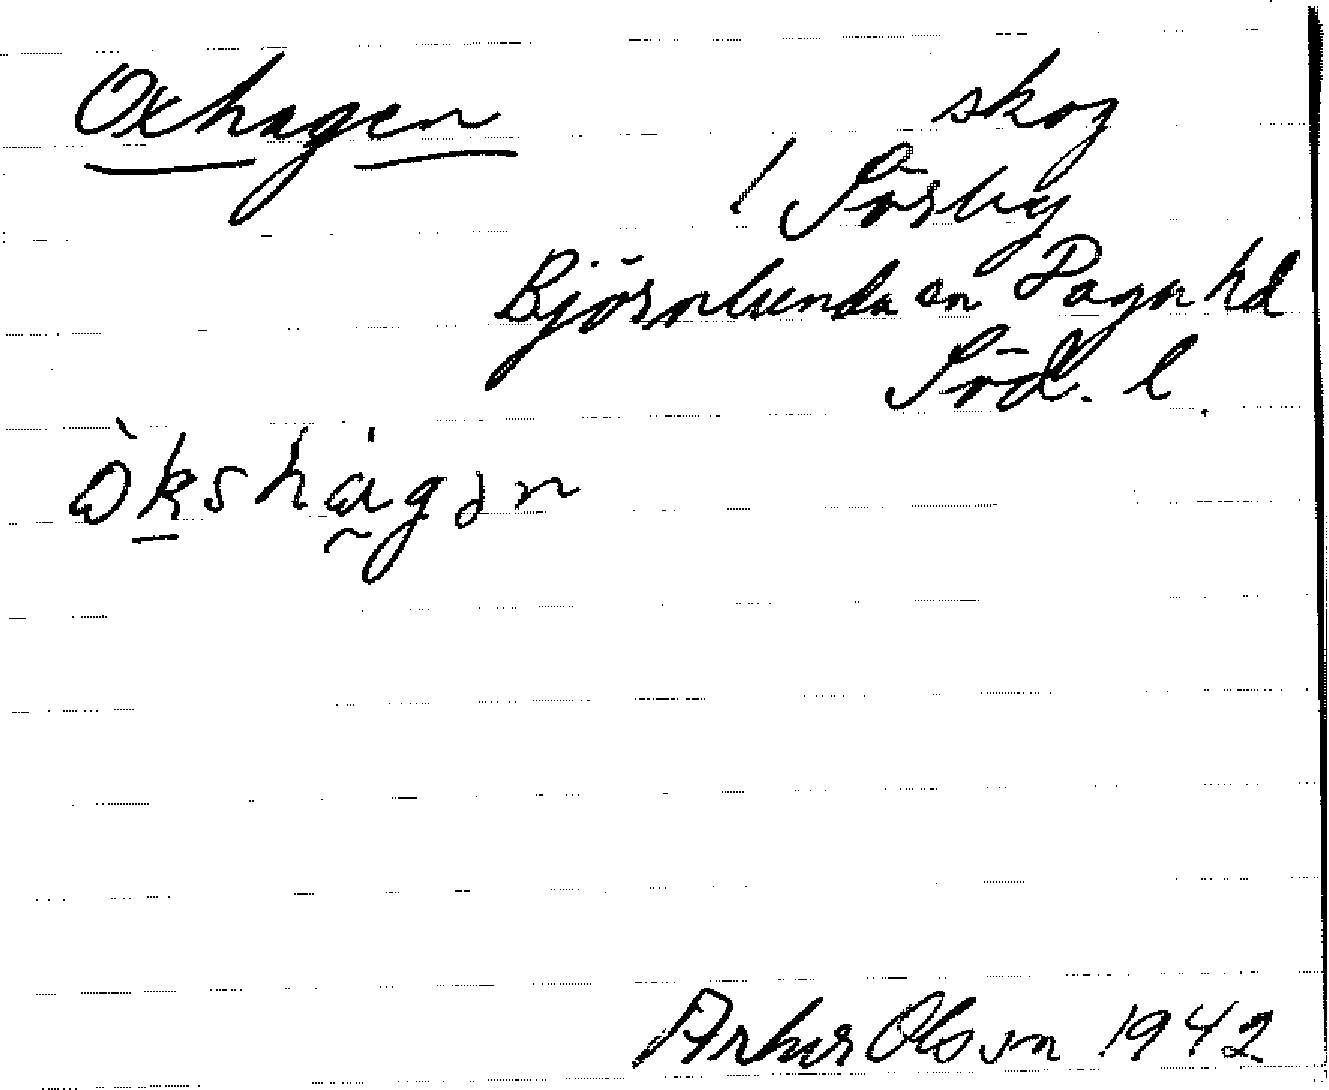 Oxhagen skog
/ Sörby
Björnlunda sn Daga hd
Söd. l.
òkshàgən
Arthur Olsson 1942